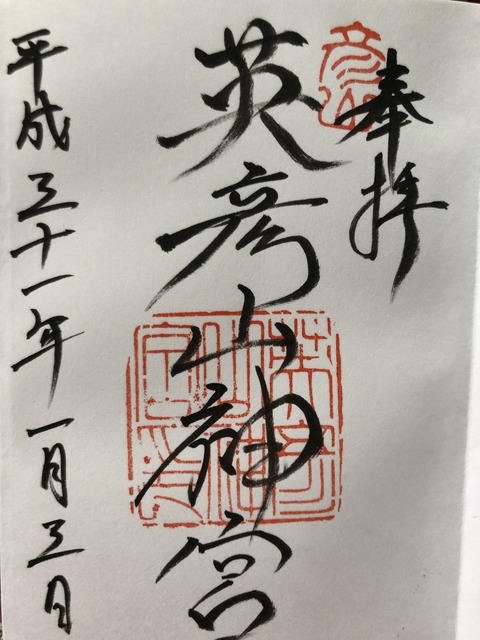 奉拝
彦山
英彦山神宮
平成三十一年一月三日